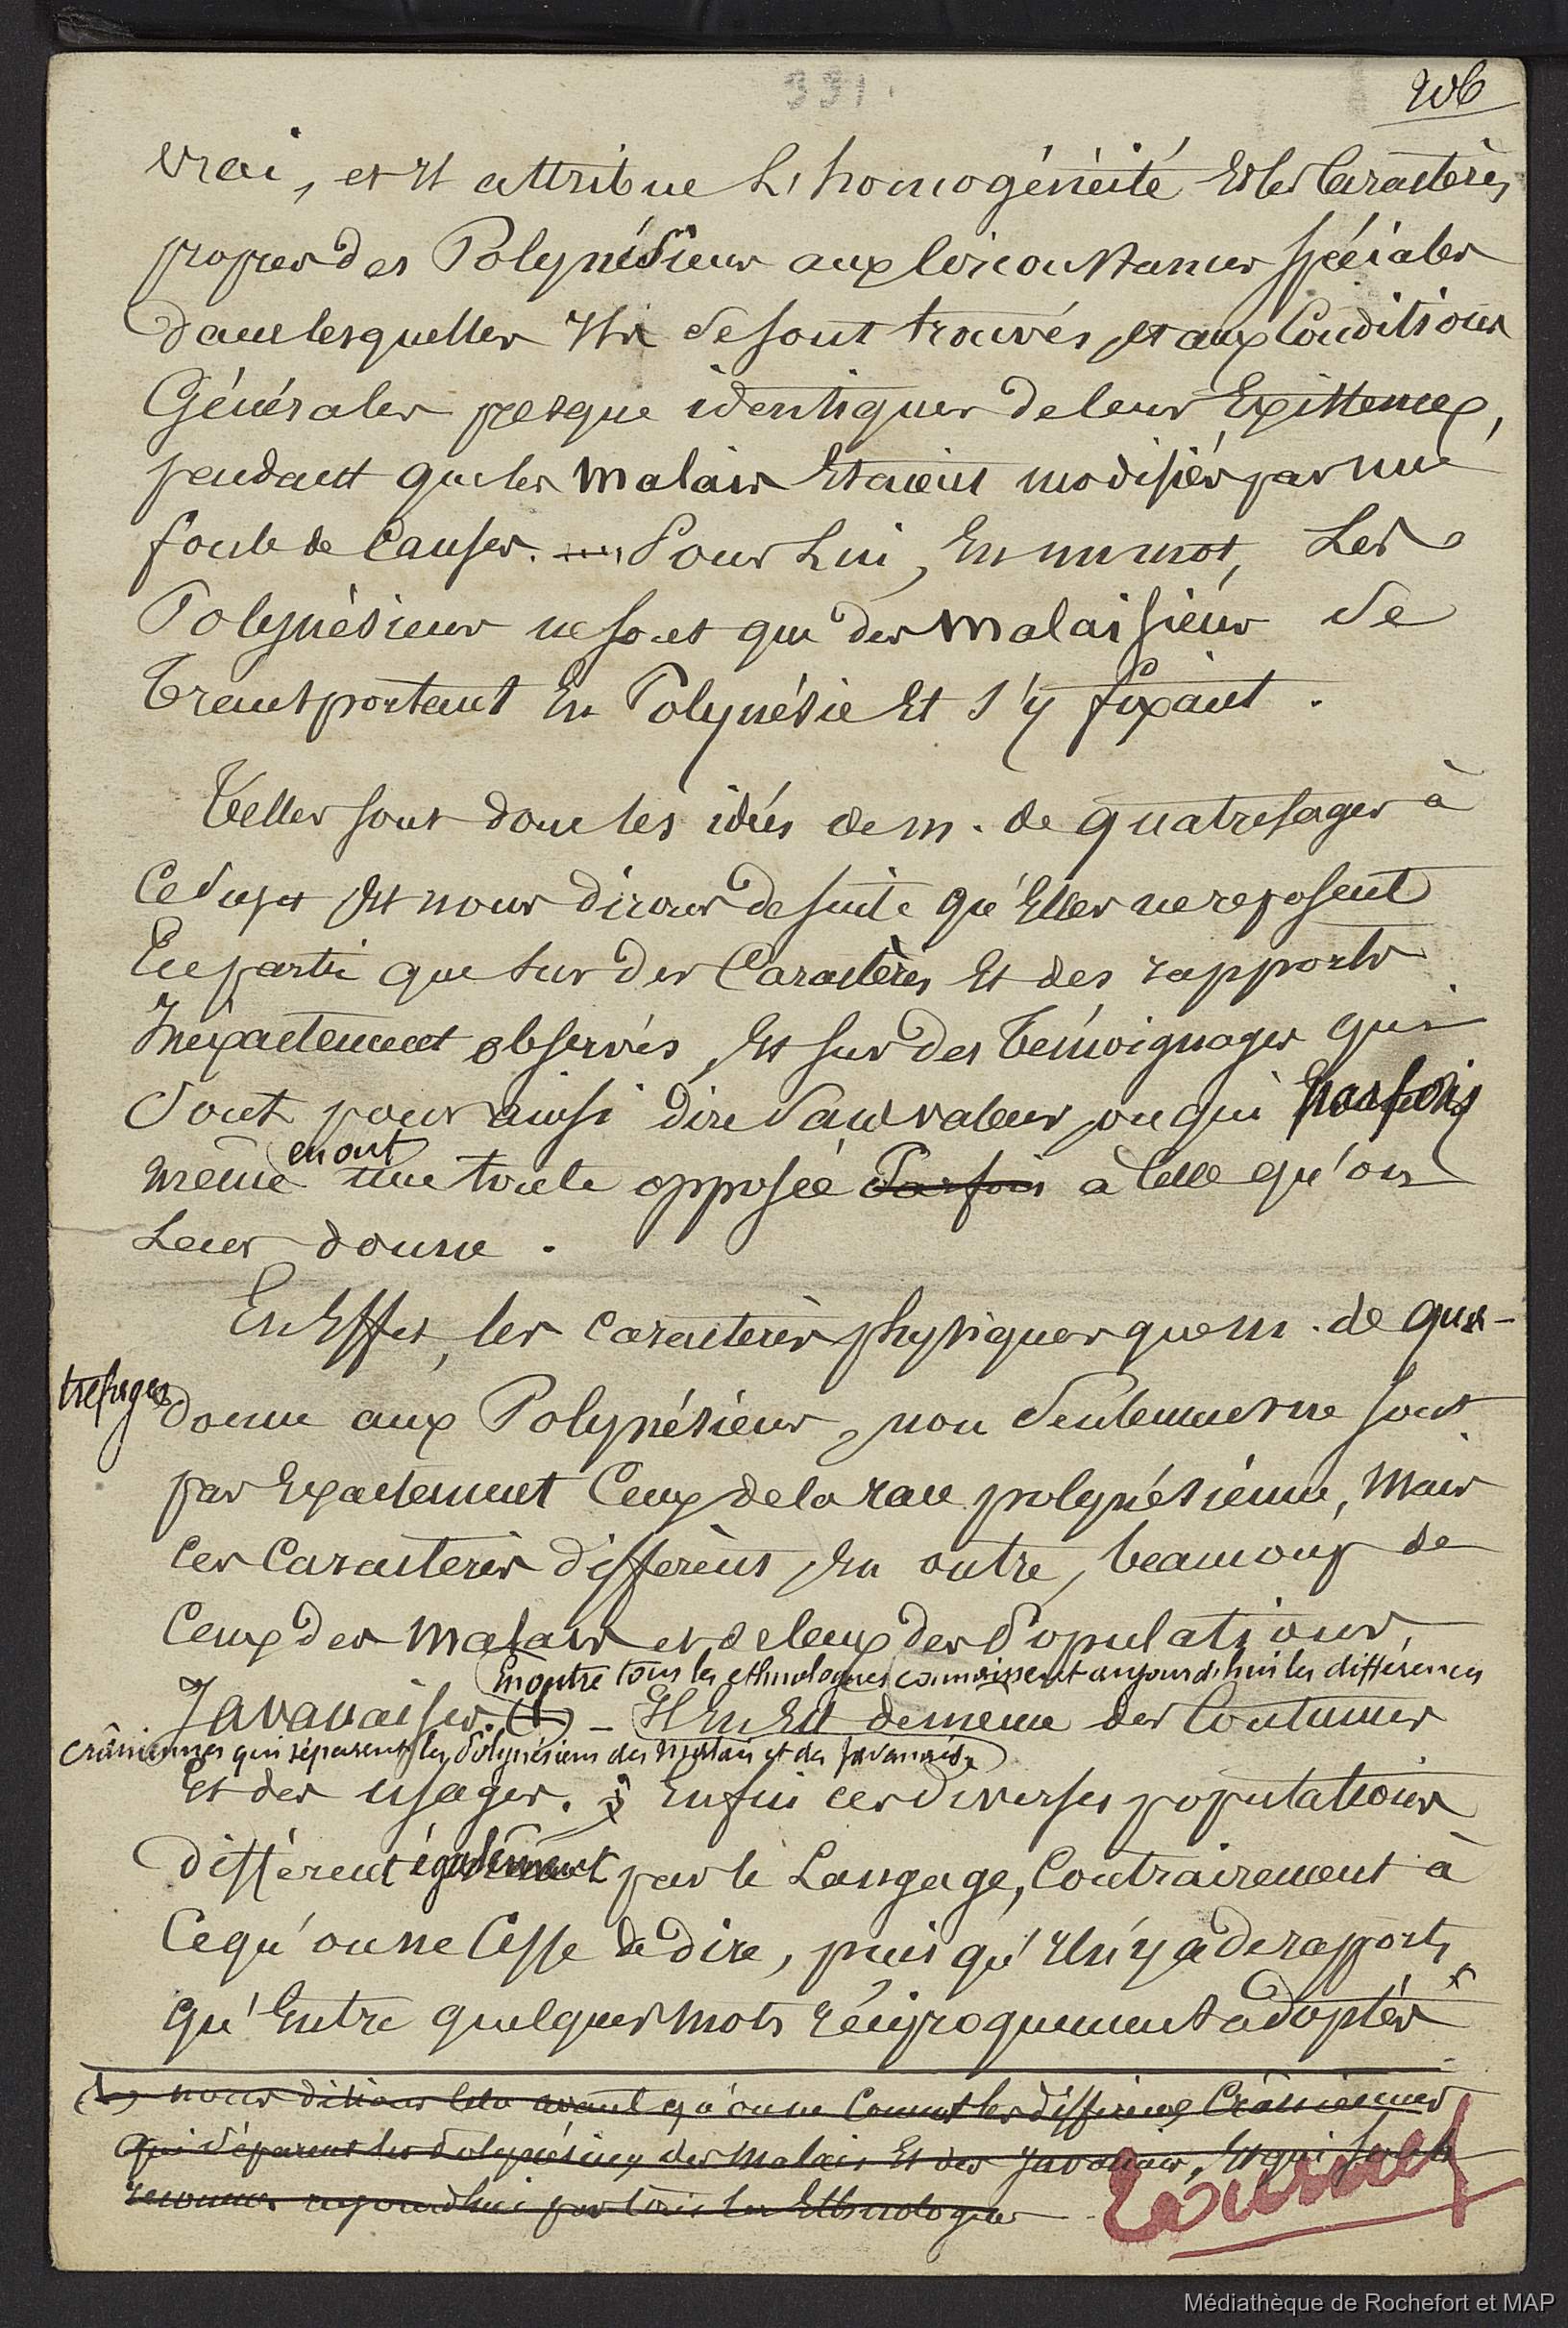 331.
206
vrai, et il attribue l'homogénéité et les caractères
propres des Polynésiens aux circonstances spéciales
dans lesquelles ils se sont trouvés, et aux conditions
Générales presque identiques de leur Existence,
pendant que les Malais Etaient modifiés par une
foule de causes. Pour Lui, En un mot, Les
Polynésiens ne sont que des Malaisiens se
transportant En Polynésie Et s'y fixant.
Telles sont donc les idées de m. de quatrefages à
ce sujet Et nous dirons de suite qu'Elles ne reposent
En partie que sur des Caractères Et des rapports
Inéxactement observés, Et sur des témoignages qui
sont pour ainsi dire sans valeur, ou qui parfois
en ont
même une toute opposée Parfois à celle qu'on
Leur donne.
En Effet, les caractères physiques que m. de qua-
trefages donne aux Polynésiens, non seulement ne sont
pas Exactement Ceux de la race polynésienne, Mais
ces Caractères diffèrent, En outre, beaucoup de
Ceux des Malais et de ceux des Populations,
En outre tous les ethnologues connaissent aujourd'hui les différences
Javanaises. (1) - Il En Est de même des Coutumes
crâniennes qui séparent les Polynésiens des Malais et des Javanais.
Et des usages. Enfin ces diverses populations
diffèrent également par le Langage, Contrairement à
Ce qu'on ne Cesse de dire, puis qu'il n'y a de rapports
qu'Entre quelques Mots réciproquement adoptés
(1) nous disions cela avant qu'on ne Connut les différences Crâniennes
qui séparent les Polynésiens des Malais Et des Javanais, Et qui sont
reconnues aujourd'hui par tous les Ethnologues
Médiathèque de Rochefort et MAP